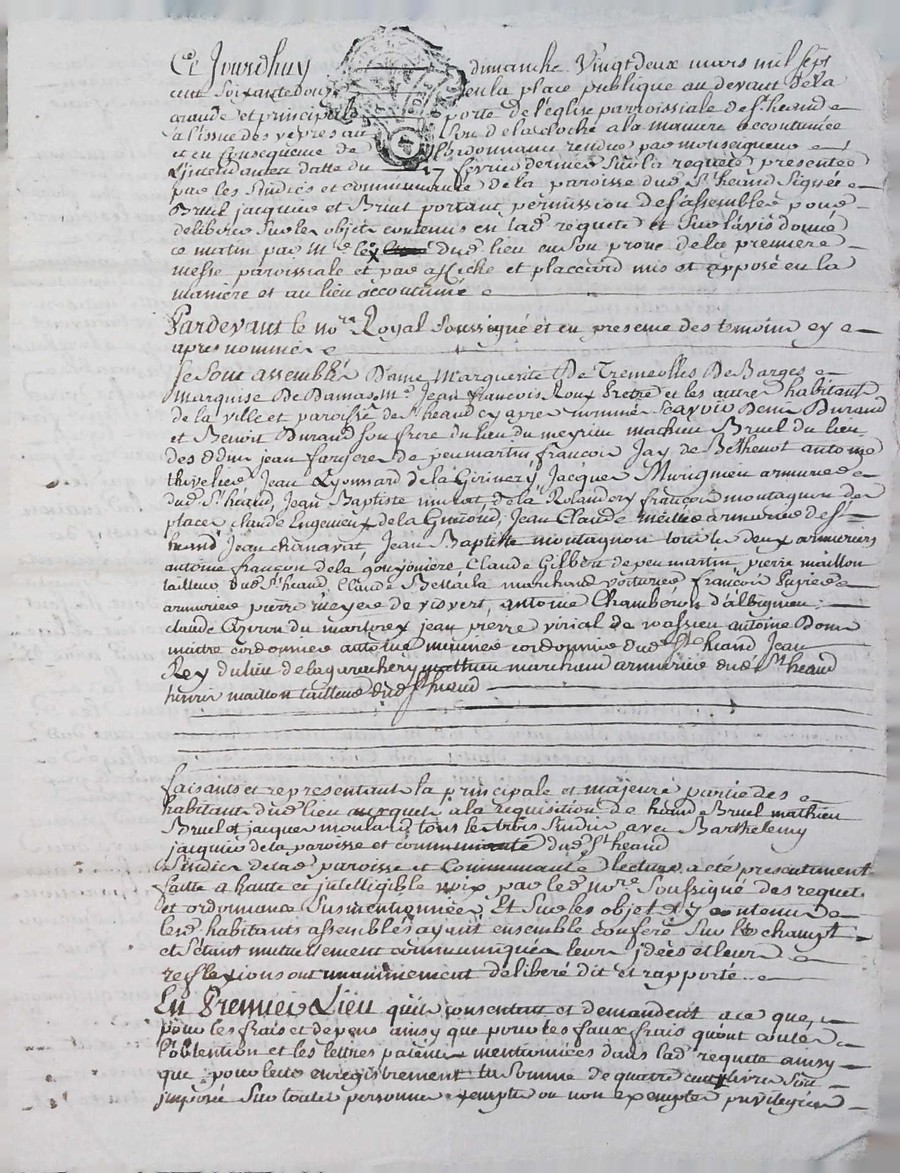 Ce Jourdhuy dimanche Vingt deux mars mil sept
cent soixante douze en la place publique au devant de la
grande et principale porte de l'église parroissiale de St. heand
a l'issue des vepres au son de la cloche a la maniere accoutumée
et en consequence de l'ordonnance rendue par monseigneur
L'intendant en datte du 17 fevrier dernier sur la requete presentée
par les sindics et communauté de la paroisse dud. St. heand signée
Bruel jacquier et Bruel portant permission de s'assembler pour
deliberer sur les objets contenus en lad. requete et sur l'avis donné
ce matin par Mr. le dud. lieu en son prone de la premiere
messe paroissiale et par affiche et placcard mis et apposé en la
maniere et au lieu accoutumé
Pardevant le nore. Royal soussigné et en presence des temoins cy
apres nommés
se sont assemblés Dame Marguerite De Tremeolles De Barges
Marquise De Damas Mre. Jean françois Roux Pretre et les autres habitants
de la ville et paroisse de St. heand cy apres nommés scavoir Denis Durand
et Benoit Durand son frere du lieu du meyrieu mathieu Bruel du lieu
des jean fargere de peu martin françois Jay de Bethenot antoine
thivelier Jean Lyonnard de la Jacques Murigneu armurier
dud. St. heand, Jean Baptiste de la françois montagnon des
places claude de la Jean Claude armurier de St.
heand Jean chanavat Jean Baptiste montagnon tous les deux armuriers
antoine françon de la goujoniere Claude Gilbert de peu martin, pierre maillon
tailleur dud. St. heand, Claude marchand voiturier françois
armurier pierre de antoine Chamberon d'albigneu
claude du jean pierre virial de antoine
maitre cordonnier antoine cordonnier dud. St. heand Jean
Rey du lieu de la mathieu marchand armurier dud. St. heand
maillon tailleur dud. St. heand
faisants et representant la principale et majeure partie des
habitants dud. lieu auxquels a la requisition de heand Bruel mathieu
Bruel et jacques moulard tous les trois sindics avec Barthelemy
jacquier de la paroisse et communauté dud. St. heand
sindics de lad. paroisse et Communauté lecture a eté presentement
faitte a haute et intelligible voix par led. nore. soussigné des requete
et ordonnance susmentionnées Et sur les objets y contenus
lesd. habitants assemblés ayant ensemble conferé sur le champt
et s'étant mutuellement communiqués leurs idées et leurs
reflexions ont unanimement deliberé dit et rapporté
En Premier Lieu quils consentent et demandent a ce que,
pour les frais et depens ainsy que pour les faux frais qu'ont coutés
l'obtention et les lettres patentes mentionnées dans lad. requete ainsy
que pour leur enregistrement la somme de quatre cent livres soit
imposée sur toutes personnes exemptes ou non exemptes privilegiées